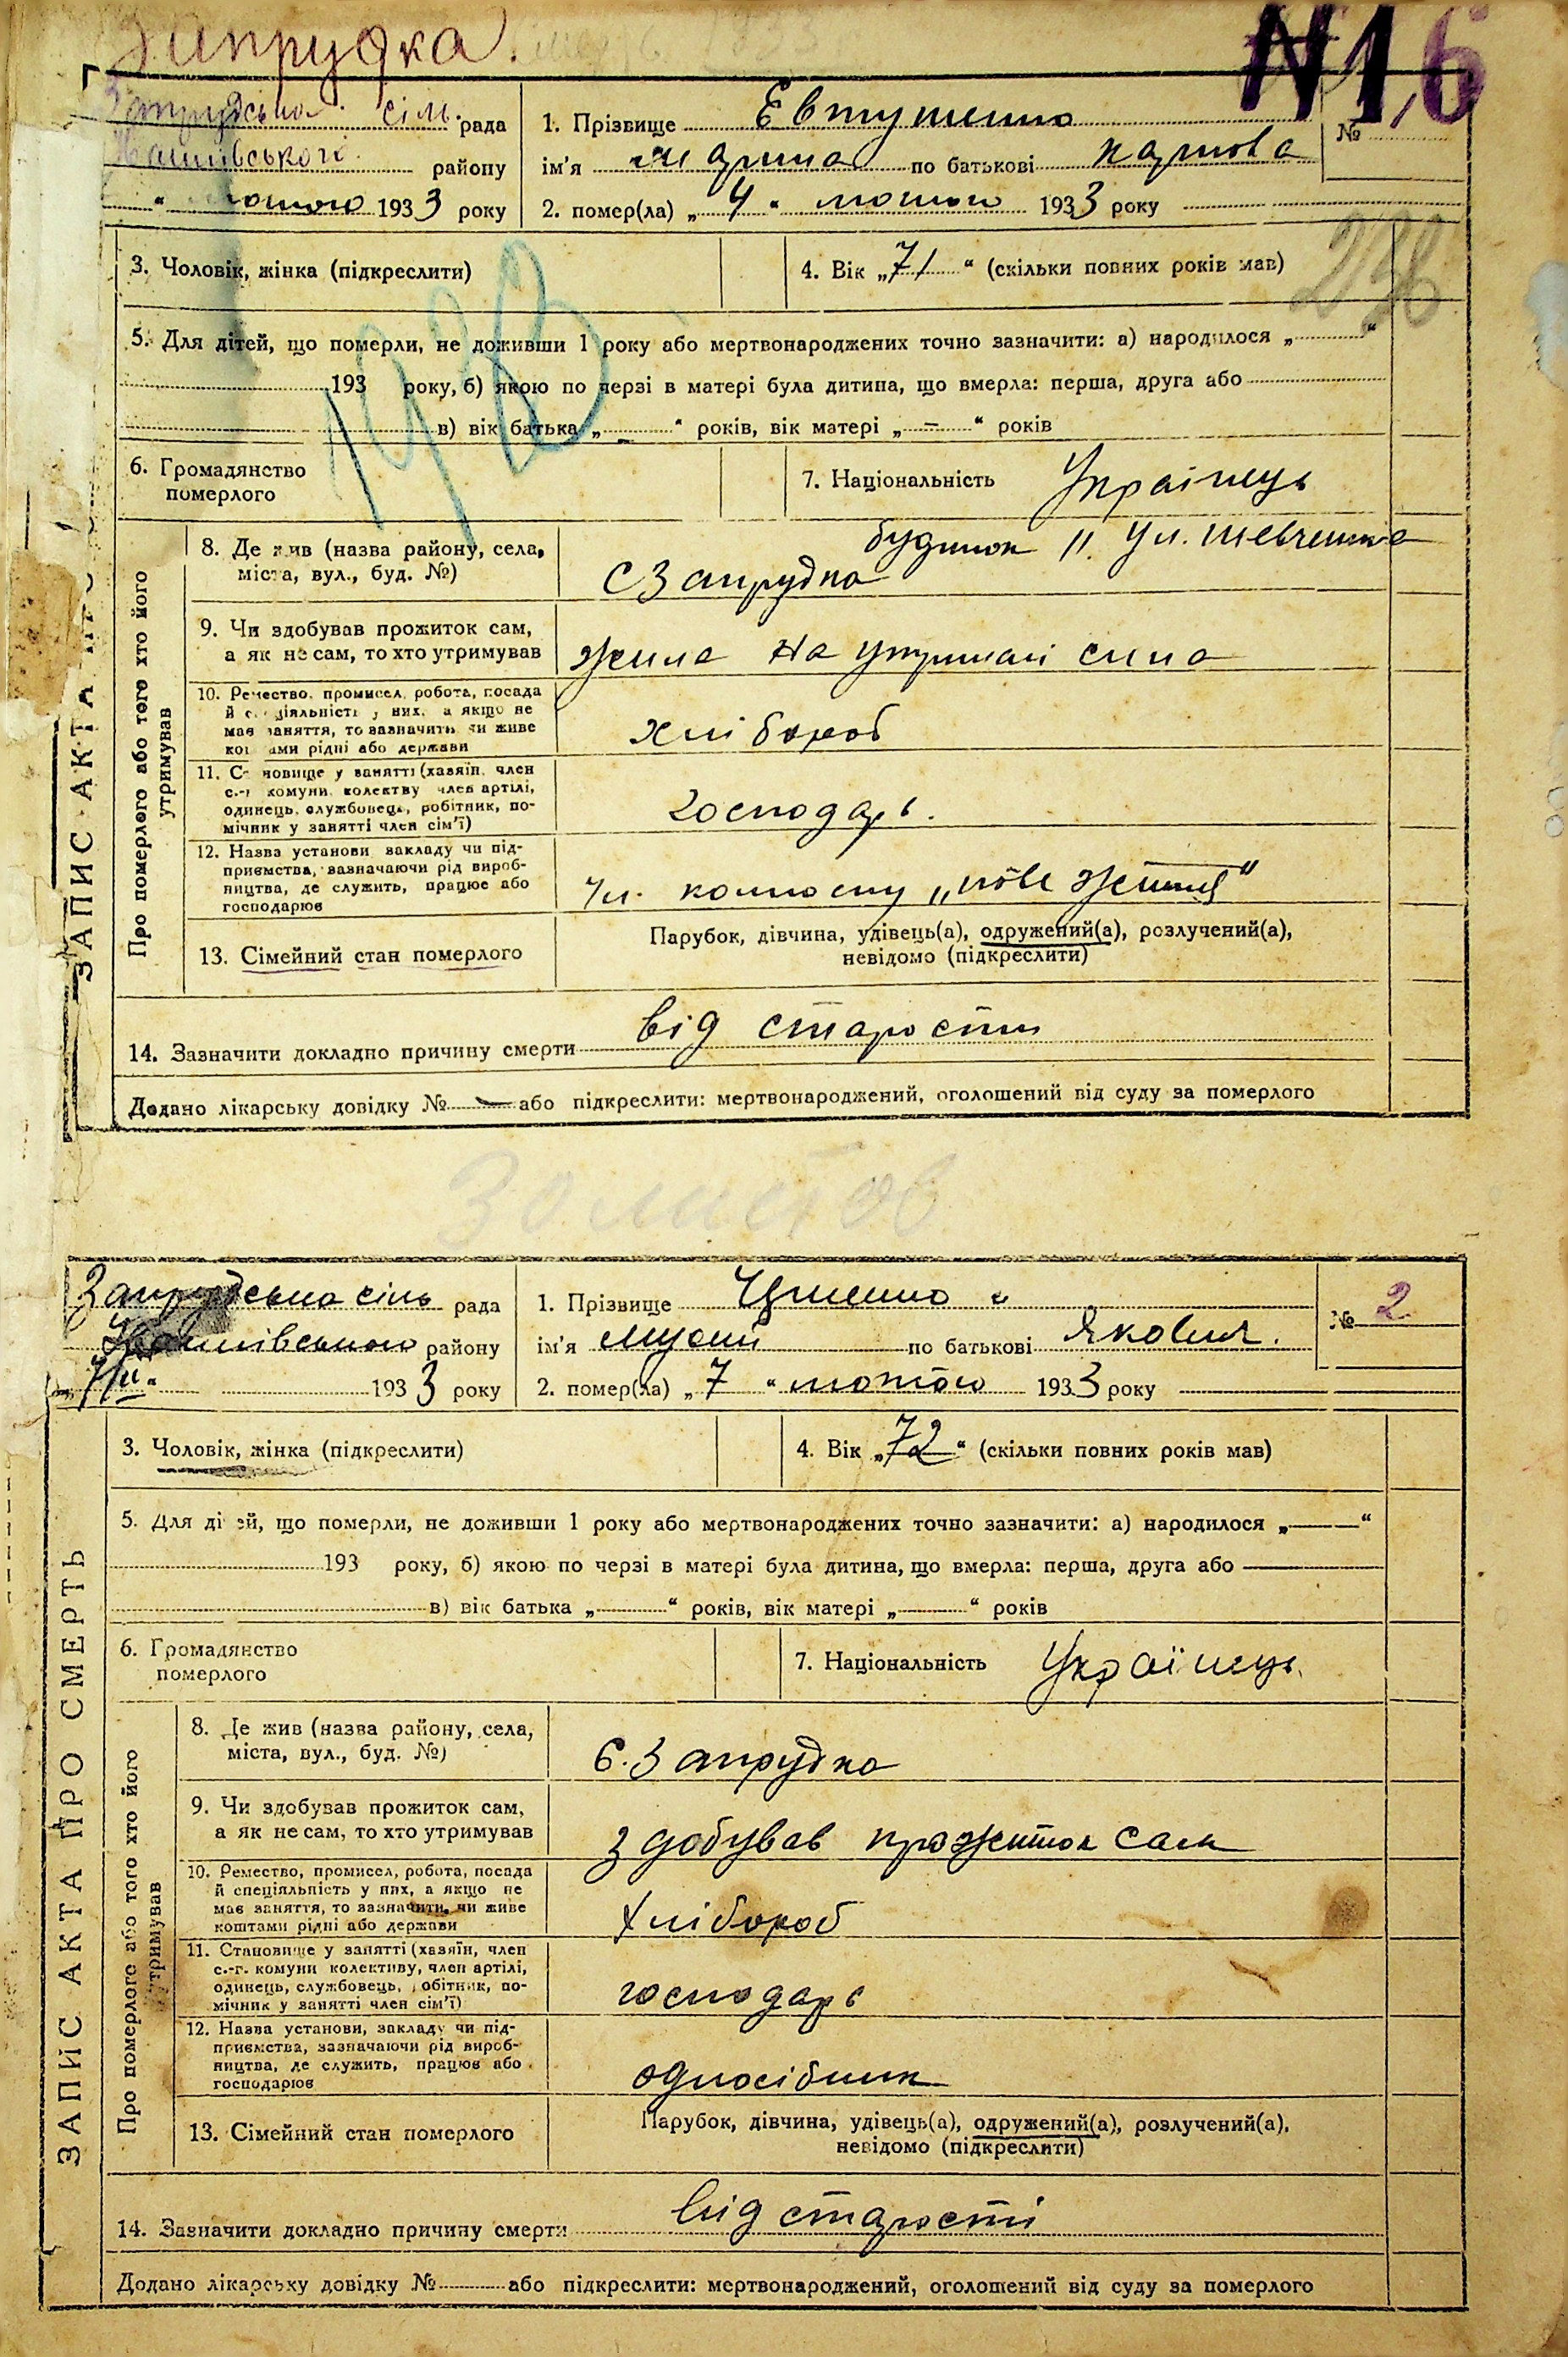 Запрудка.
N1,6
Запрудська сіль. рада
району
лютого 1933 року
1. Прізвище Евтушенко
№
ім'я Марина по батькові Карпова
2. помер(ла) „4“ лютого 1933 року
238
3. Чоловік, жінка (підкреслити)
4. Вік „71“ (скільки повних років мав)
5. Для дітей, що померли, не доживши 1 року або мертвонароджених точно зазначити: а) народилося „ “
193 року, б) якою по черзі в матері була дитина, що вмерла: перша, друга або
в) вік батька „ – “ років, вік матері „ – “ років
6. Громадянство
померлого
7. Національність Українець
8. Де жив (назва району, села,
міста, вул., буд. №)
будинок 11. Ул. Шевченка
С Запрудка
9. Чи здобував прожиток сам,
а як не сам, то хто утримував
жила на утримані сина
10. Ремество, промисел, робота, посада
й спеціяльність у них, а якщо не
має заняття, то зазначить чи живе
коштами рідні або держави
хлібороб
11. Становище у занятті (хазяїн, член
с.-г. комуни, колективу, член артілі,
одинець, службовець, робітник, по-
мічник у занятті член сім'ї)
господарь.
12. Назва установи закладу чи під-
приємства, зазначаючи рід вироб-
ництва, де служить, працює або
господарює
Чл. колгоспу „нове життя“
13. Сімейний стан померлого
Парубок, дівчина, удівець(а), одружений(а), розлучений(а),
невідомо (підкреслити)
14. Зазначити докладно причину смерти від старости
Додано лікарську довідку № — або підкреслити: мертвонароджений, оголошений від суду за померлого
Про померлого або того хто його
утримував
ЗАПИС АКТА
30 листов
Запрудська сіль рада
району
7/II 1933 року
1. Прізвище
№ 2
ім'я Мусій по батькові Якович.
2. помер(ла) „7“ лютого 1933 року
3. Чоловік, жінка (підкреслити)
4. Вік „72“ (скільки повних років мав)
5. Для дітей, що померли, не доживши 1 року або мертвонароджених точно зазначити: а) народилося „—“
193 року, б) якою по черзі в матері була дитина, що вмерла: перша, друга або —
в) вік батька „—“ років, вік матері „—“ років
6. Громадянство
померлого
7. Національність Українець.
8. Де жив (назва району, села,
міста, вул., буд. №)
С. Запрудка
9. Чи здобував прожиток сам,
а як не сам, то хто утримував
здобував прожиток сам
10. Ремество, промисел, робота, посада
й спеціяльність у них, а якщо не
має заняття, то зазначити, чи живе
коштами рідні або держави
Хлібороб
11. Становище у занятті (хазяїн, член
с.-г. комуни колективу, член артілі,
одинець, службовець, робітник, по-
мічник у занятті член сім'ї)
господарь
12. Назва установи, закладу чи під-
приємства, зазначаючи рід вироб-
ництва, де служить, працює або
господарює
односібник
13. Сімейний стан померлого
Парубок, дівчина, удівець(а), одружений(а), розлучений(а),
невідомо (підкреслити)
14. Зазначити докладно причину смерти від старости
Додано лікарську довідку № або підкреслити: мертвонароджений, оголошений від суду за померлого
Про померлого або того хто його
утримував
ЗАПИС АКТА ПРО СМЕРТЬ